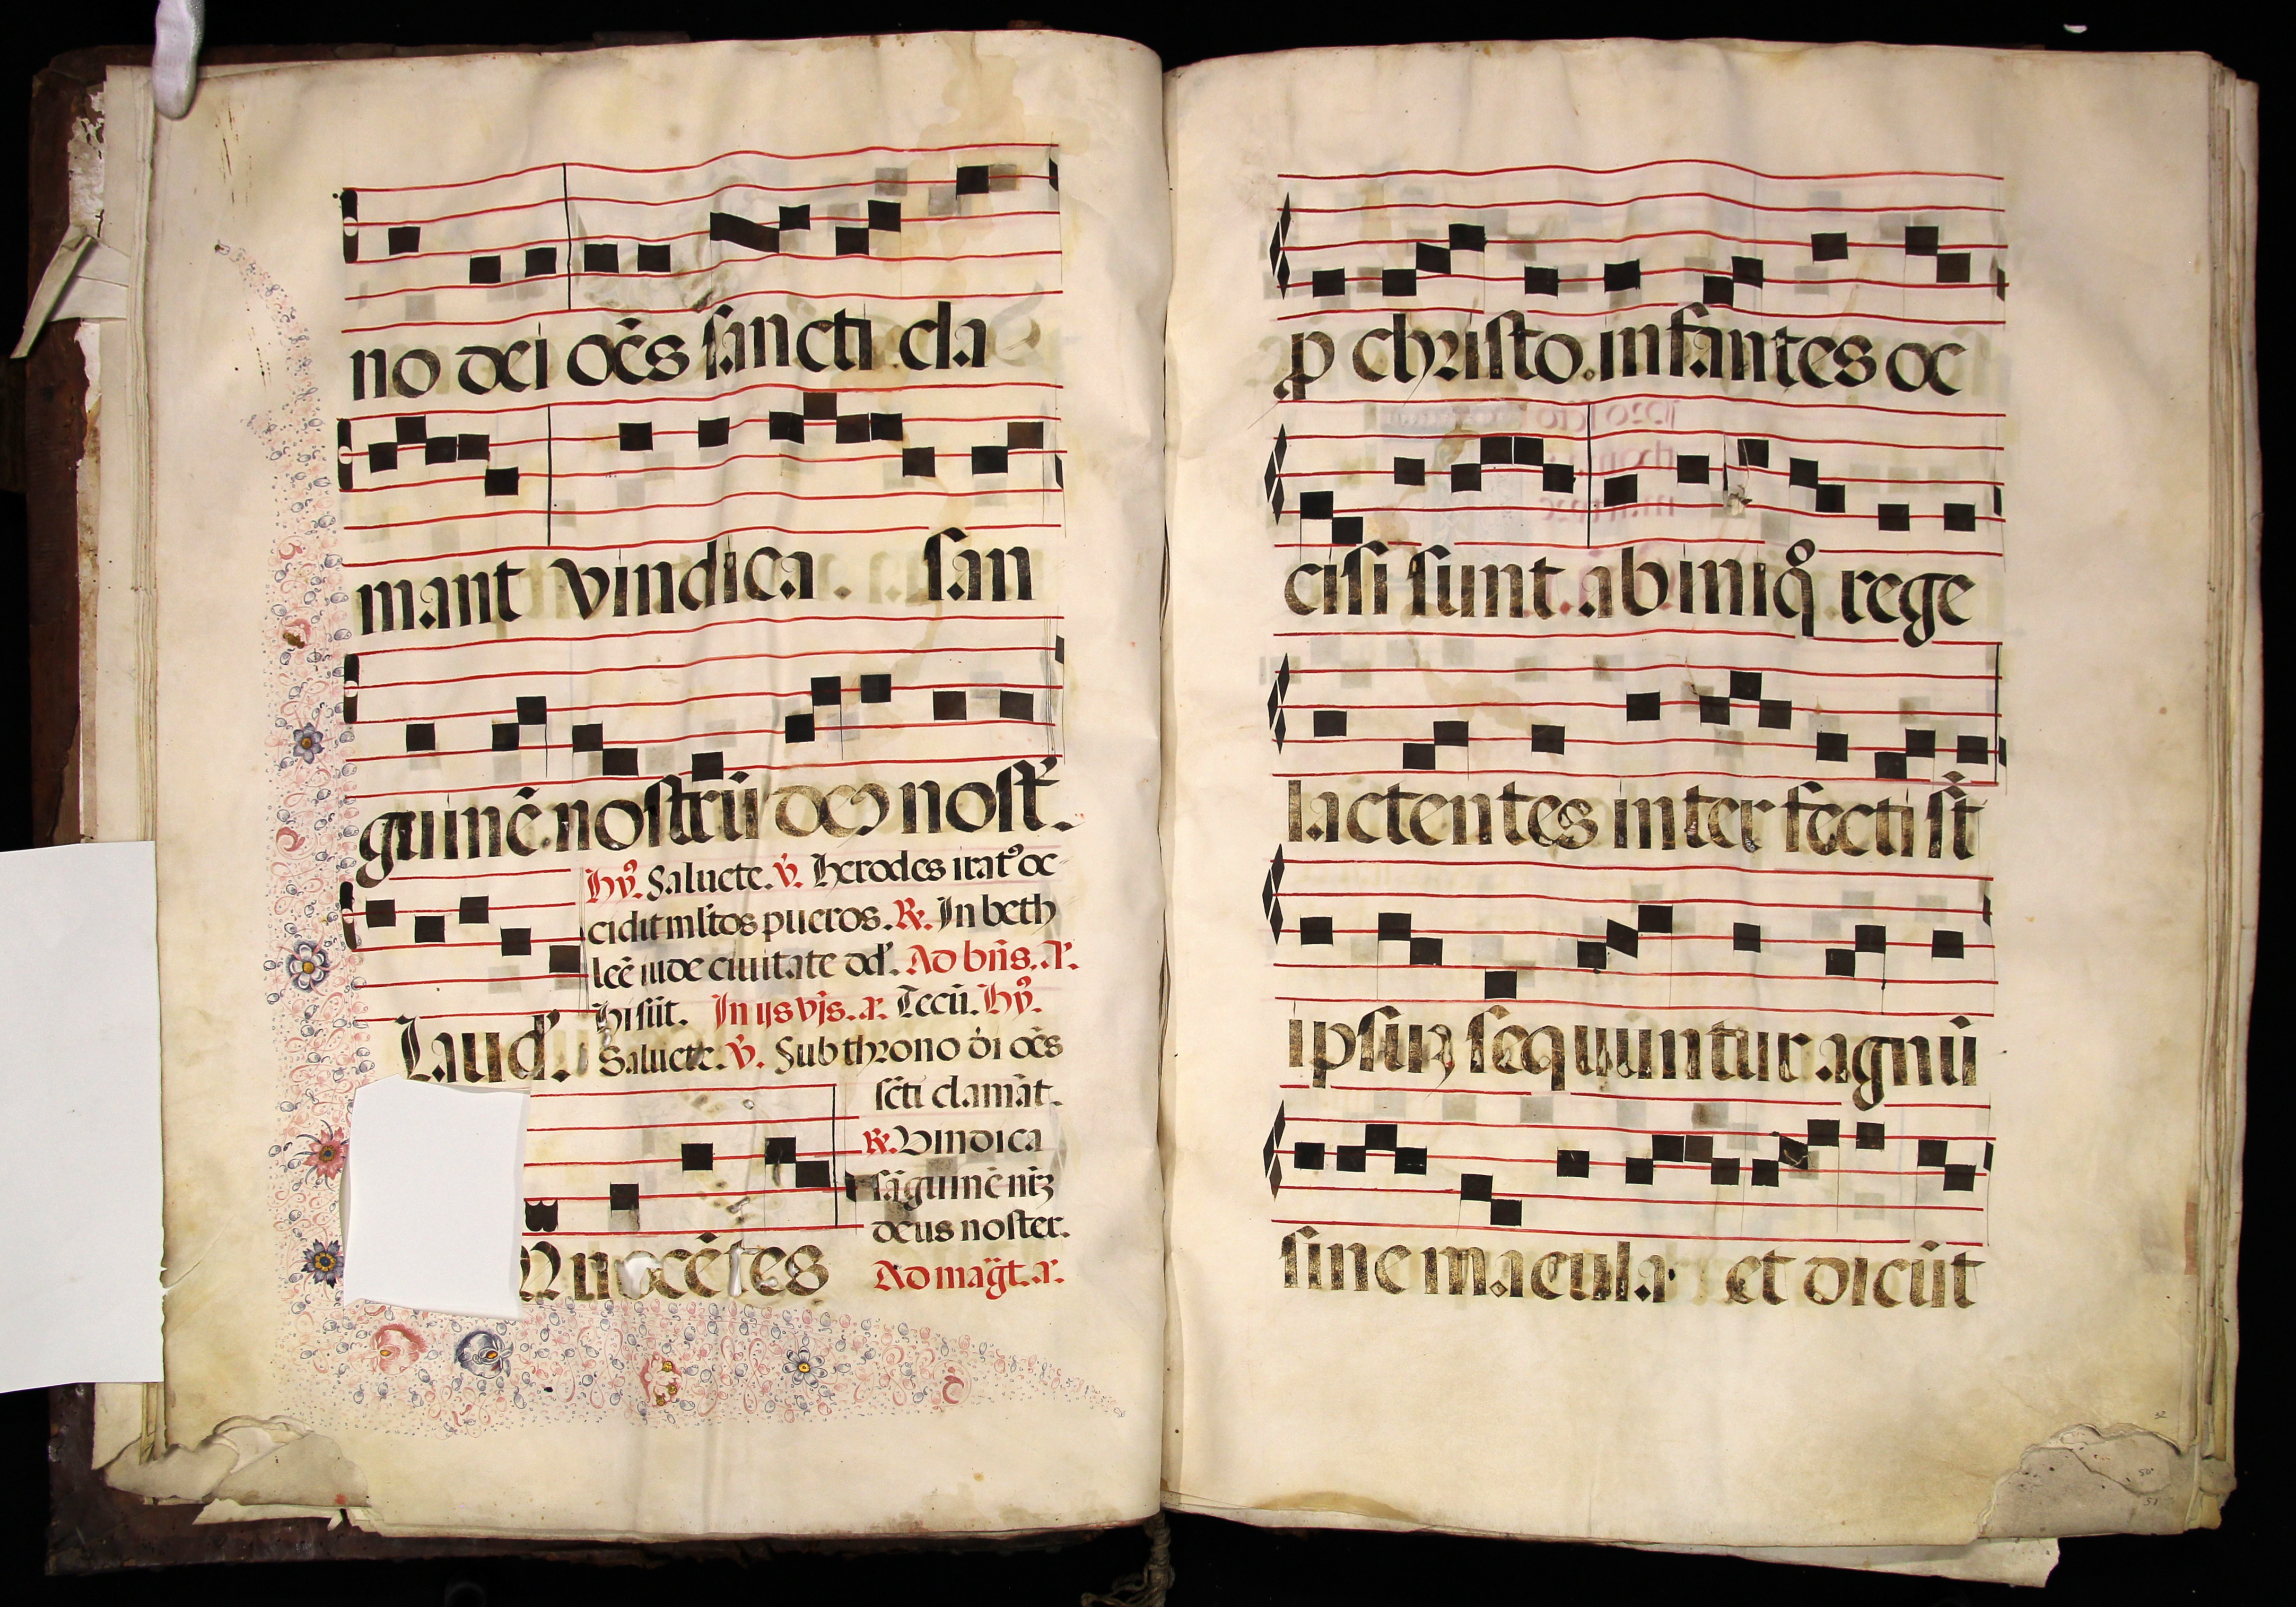 no dei oēs sancti cla
mant vindica. san
guinē nostrū deꝰ nost̄.
Hỹ. Saluete. v̄. Herodes iratꝰ oc
cidit ml̄tos pueros. ℟. In beth
leē iude ciuitate dd̄. Ad bn̄s. a.
Hi sūt. In ijs vīs. a. Tecū. Hỹ.
Laud̄.
Saluete. v̄. Sub throno d̄i oēs
sc̄ti clamāt.
℟. Vindica
sāguinē nr̄ꝫ
deus noster.
Nnocētes
Ad magt̄. a.
ꝓ christo. infantes oc
cisi sunt. ab iniqͦ rege
lactentes inter fecti sūt
ipsuꝫ sequuntur agnū
sine macula et dicūt
52
50
51